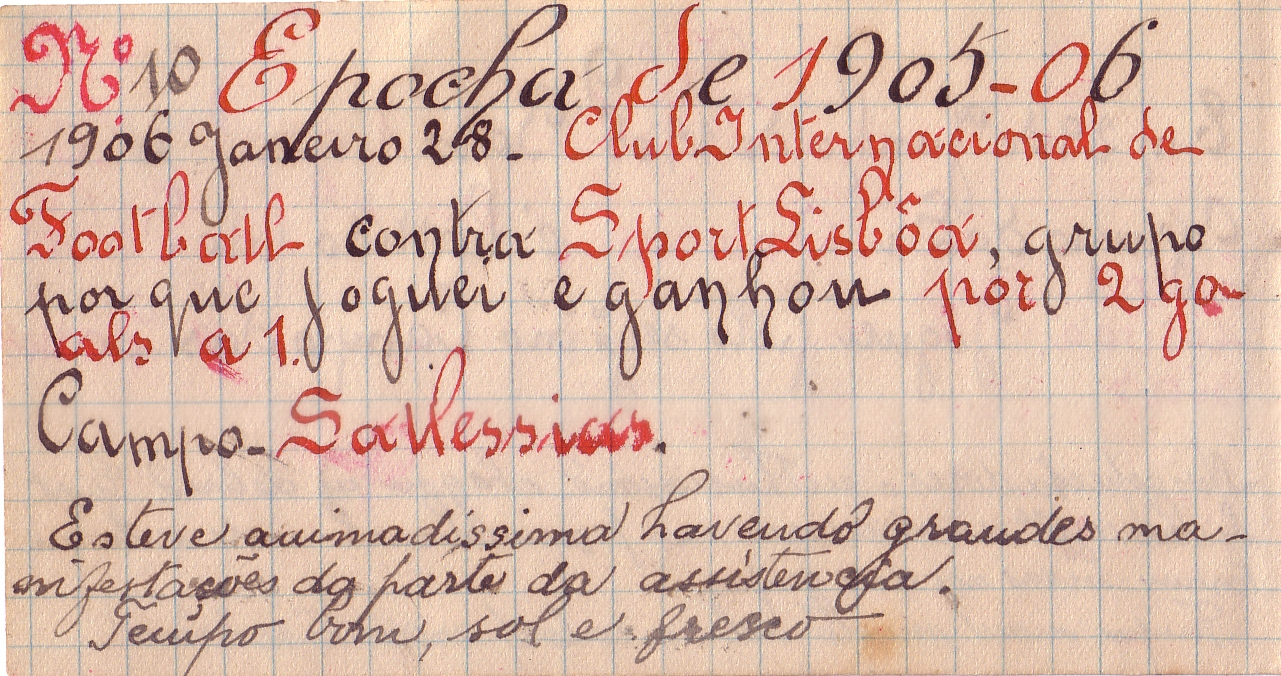 Nº 10 Epocha de 1905-06
1906 Janeiro 28- Club Internacional de
Football contra Sport Lisbôa, grupo
por que joguei e ganhou por 2 go-
als a 1.
Campo- Sallessias.
Esteve animadissima havendo grandes ma-
nifestações da parte da assistencia.
Tempo bom, sol e fresco